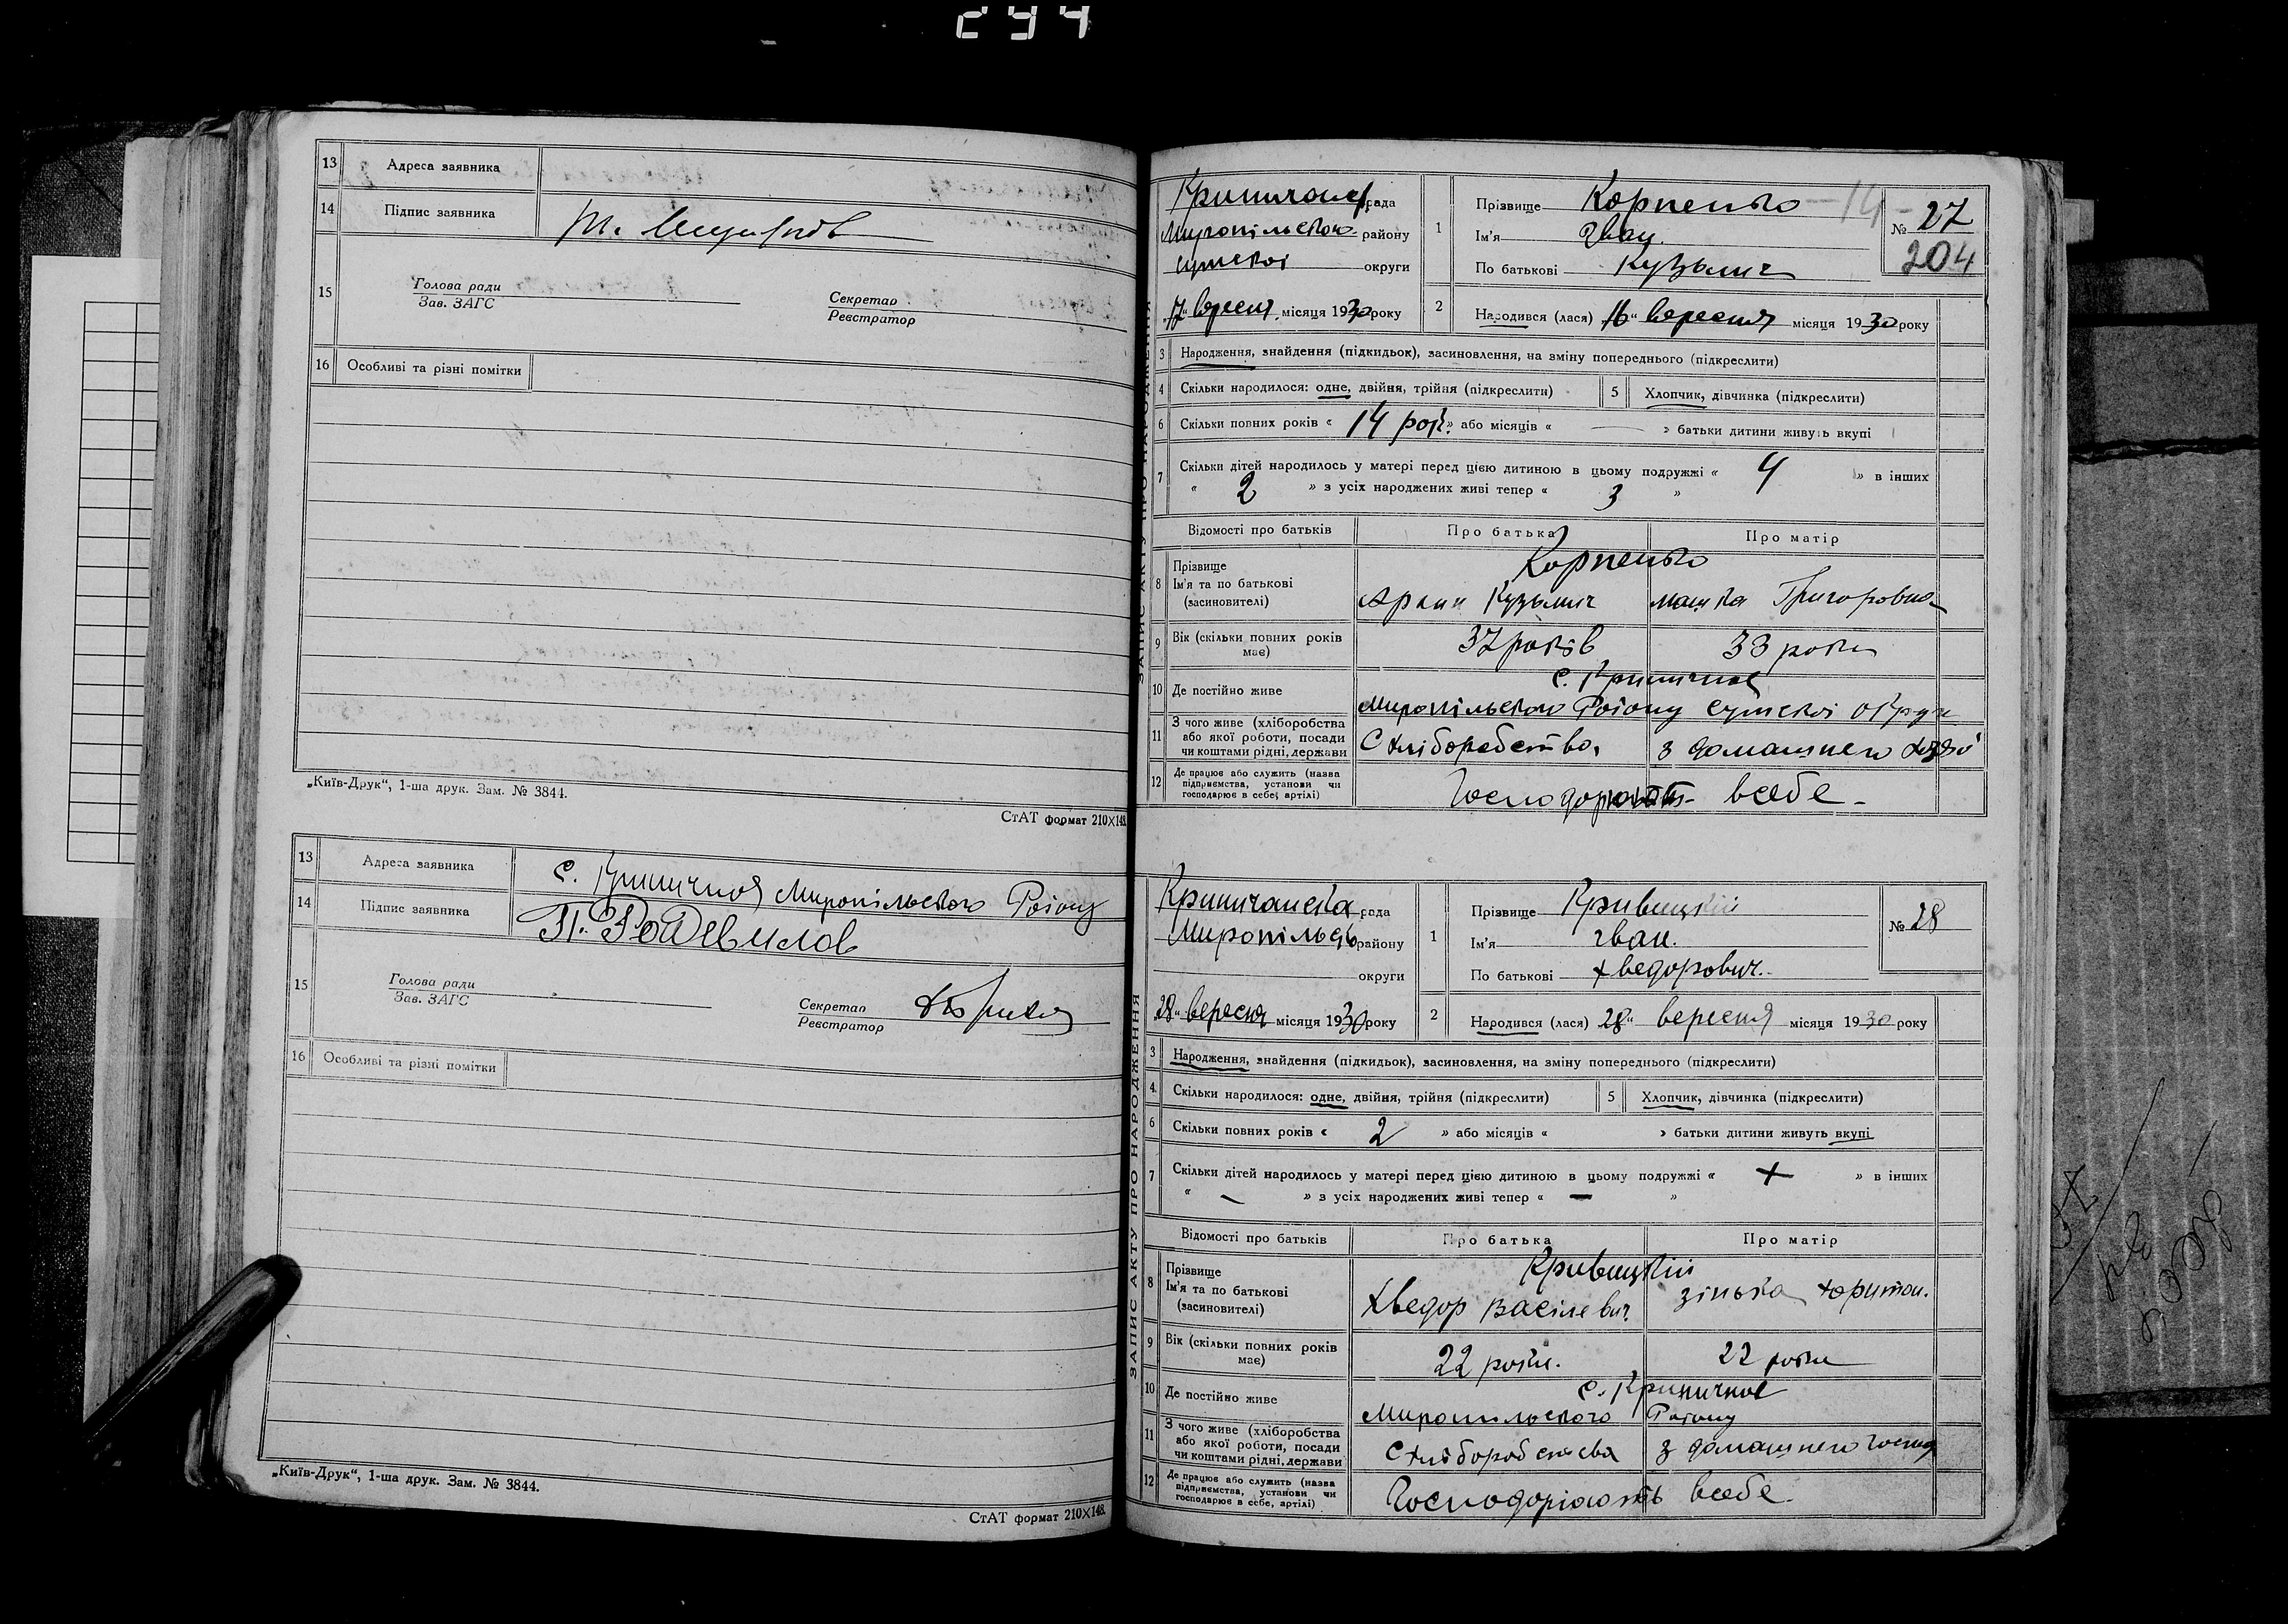 294
13 Адреса заявника
14 Підпис заявника
15 Голова ради
Зав. ЗАГС
Секретар
Реєстратор
16 Особливі та різні помітки
„Київ-Друк“, 1-ша друк. Зам. № 3844.
СтАТ формат 210×148.
13 Адреса заявника с. Криничноя Миропільского Раіону
14 Підпис заявника П. Радевилов
15 Голова ради
Зав. ЗАГС
Секретар
Реєстратор
16 Особливі та різні помітки
„Київ-Друк“, 1-ша друк. Зам. № 3844.
СтАТ формат 210×148.
ЗАПИС АКТУ ПРО НАРОДЖЕННЯ
рада
Миропільского району
сумскоі округи
„17“ вересня місяця 1930 року
1 Прізвище Корпенко — 14 —
Ім'я Іван
По батькові Кузьмич
№ 27
204
2 Народився (лася) 16“ вересня місяця 1930 року
3 Народження, знайдення (підкидьок), засиновлення, на зміну попереднього (підкреслити)
4 Скільки народилося: одне, двійня, трійня (підкреслити) 5 Хлопчик, дівчинка (підкреслити)
6 Скільки повних років « 14 рок. » або місяців « — » батьки дитини живуть вкупі
7 Скільки дітей народилось у матері перед цією дитиною в цьому подружжі « 4 » в інших
« 2 » з усіх народжених живі тепер « 3 »
Відомості про батьків Про батька Про матір
8 Прізвище
Ім'я та по батькові
(засиновителі)
Корпенко
Кузьмич Григоровна
9 Вік (скільки повних років має) 37 років 33 роки
10 Де постійно живе с. Криничное
Миропільского Раіону сумскоі округи
11 З чого живе (хліборобства або якої роботи, посади чи коштами рідні, держави
С хліборобства з домашнего
12 Де працює або служить (назва підприємства, установи чи господарює в себе, артілі)
Господорюють всебе
ЗАПИС АКТУ ПРО НАРОДЖЕННЯ
Криничанска рада
Миропільск району
округи
28“ вересня місяця 1930 року
1 Прізвище Кривицкій
Ім'я Іван.
По батькові Хведорович.
№ 28
2 Народився (лася) 28“ вересня місяця 1930 року
3 Народження, знайдення (підкидьок), засиновлення, на зміну попереднього (підкреслити)
4 Скільки народилося: одне, двійня, трійня (підкреслити) 5 Хлопчик, дівчинка (підкреслити)
6 Скільки повних років « 2 » або місяців « » батьки дитини живуть вкупі
7 Скільки дітей народилось у матері перед цією дитиною в цьому подружжі « + » в інших
« — » з усіх народжених живі тепер « — »
Відомості про батьків Про батька Про матір
8 Прізвище
Ім'я та по батькові
(засиновителі)
Кривицкій
Хведор Васілевич. Зінька Харитон.
9 Вік (скільки повних років має) 22 роки. 22 роки
10 Де постійно живе с. Криничное
Миропильского Раіону
11 З чого живе (хліборобства або якої роботи, посади чи коштами рідні, держави
С хліборобства з домашнего господ
12 Де працює або служить (назва підприємства, установи чи господарює в себе, артілі)
Господоріють всебе.